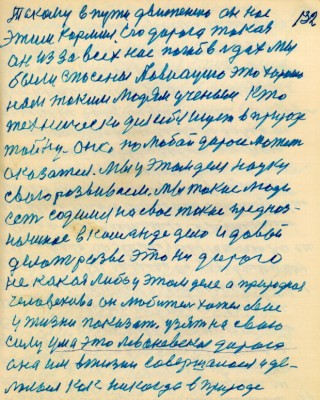 132
Такому в пути движению он нас
этим кормил Его дорога такая
он из за всех нас погиб в годах мы
были спасены Авиацию это хорошо
нам таким людям ученым Кто
технически для себя ищет в природе
тайну. Она по любой дороге может
оказаться. Мы у этом деле науку
свою развиваем. Мы такие люди
есть садимся на свое такое предназ-
наченное в команде дело и давай
делать разве это ни дорого
не какая либо у этом деле а природная
человека он любитель хотел свое
у жизни показать узять на свою
силу ума это Московская дорога
она им в жизни совершалася и де-
лалася Как никогда в природе